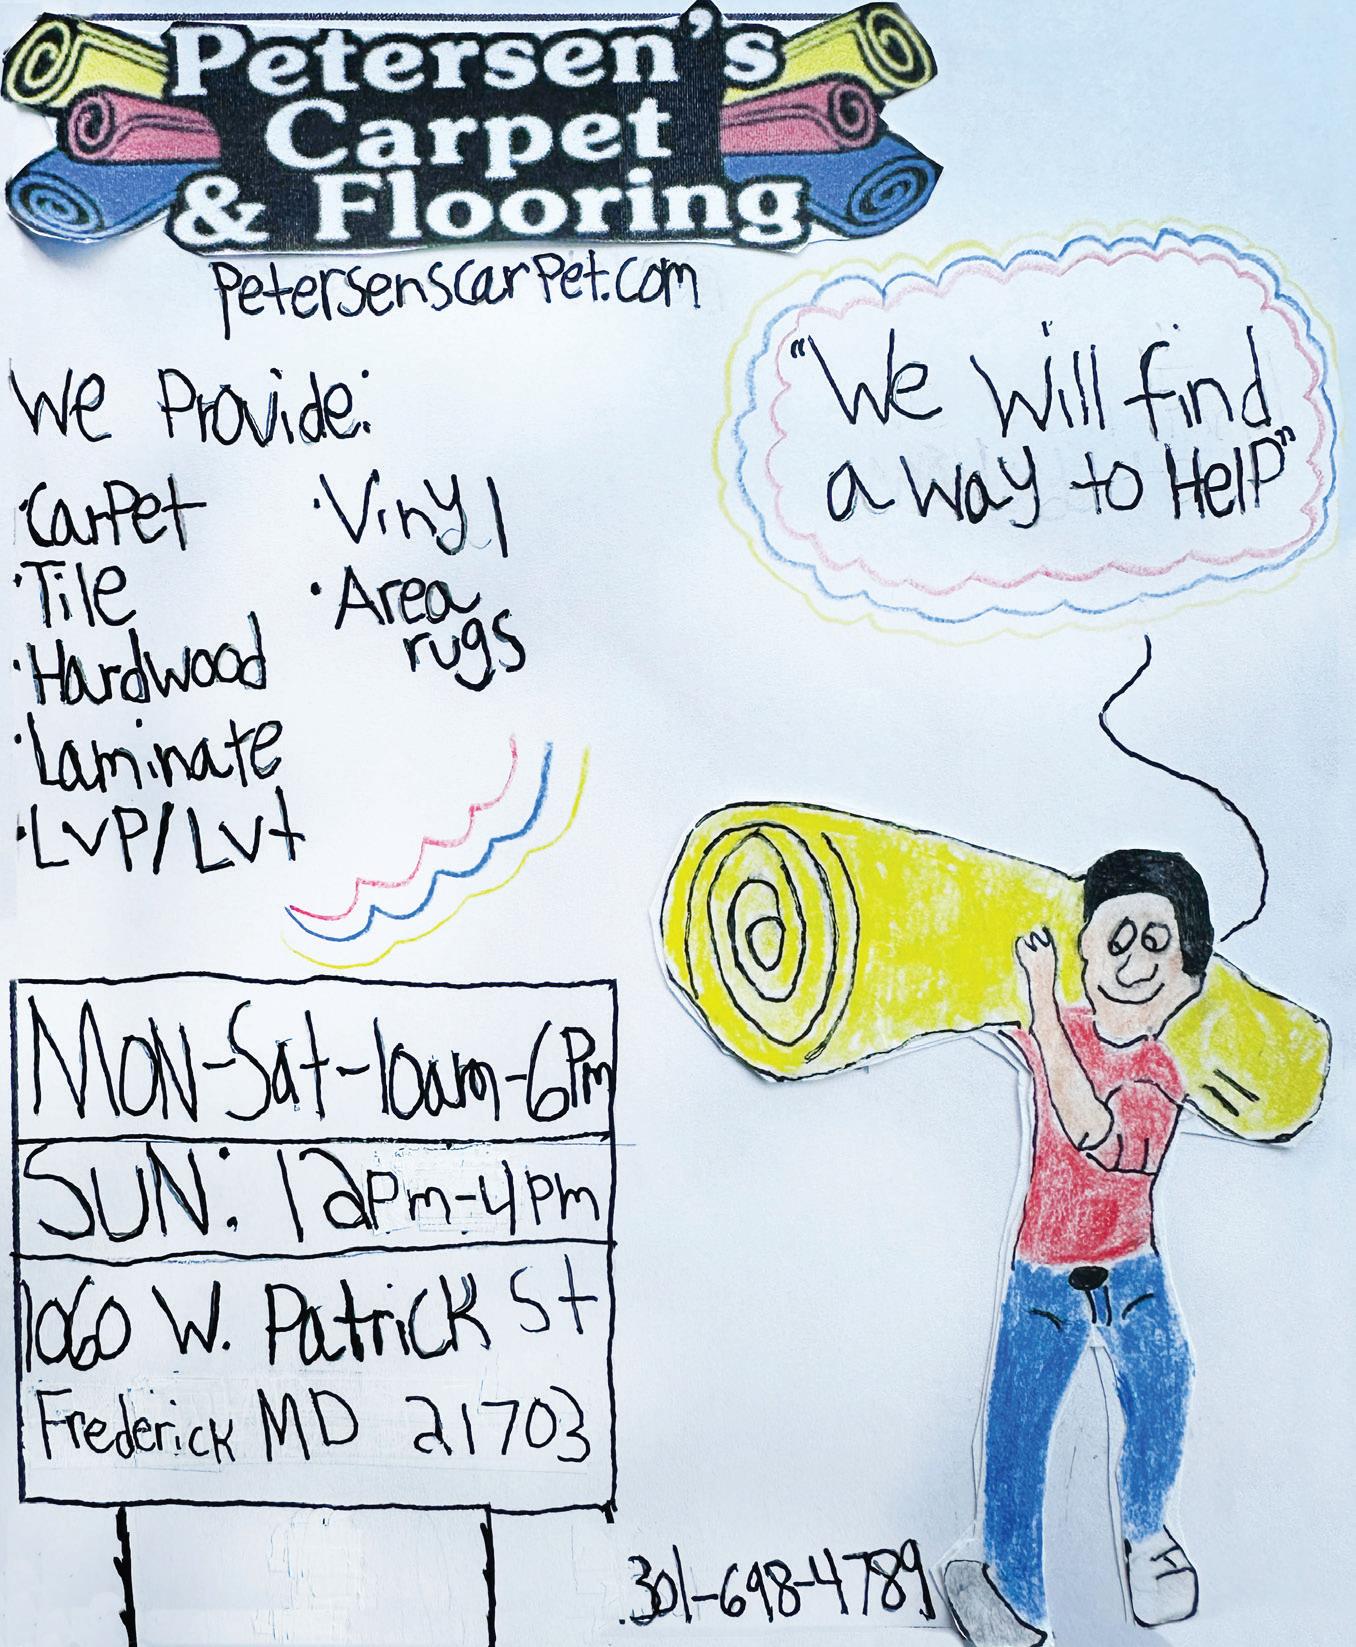 Petersen's
Carpet
& Flooring
PetersenscarPet.com
We Provide:
·CarPet
·Tile
·Hardwood
·Laminate
·LVP/LVt
·Vinyl
·Area
rugs
"We Will find
a way to HelP"
MON-Sat-10am-6Pm
SUN: 12pm-4pm
1060 W. Patrick St
Frederick MD 21703
301-698-4789